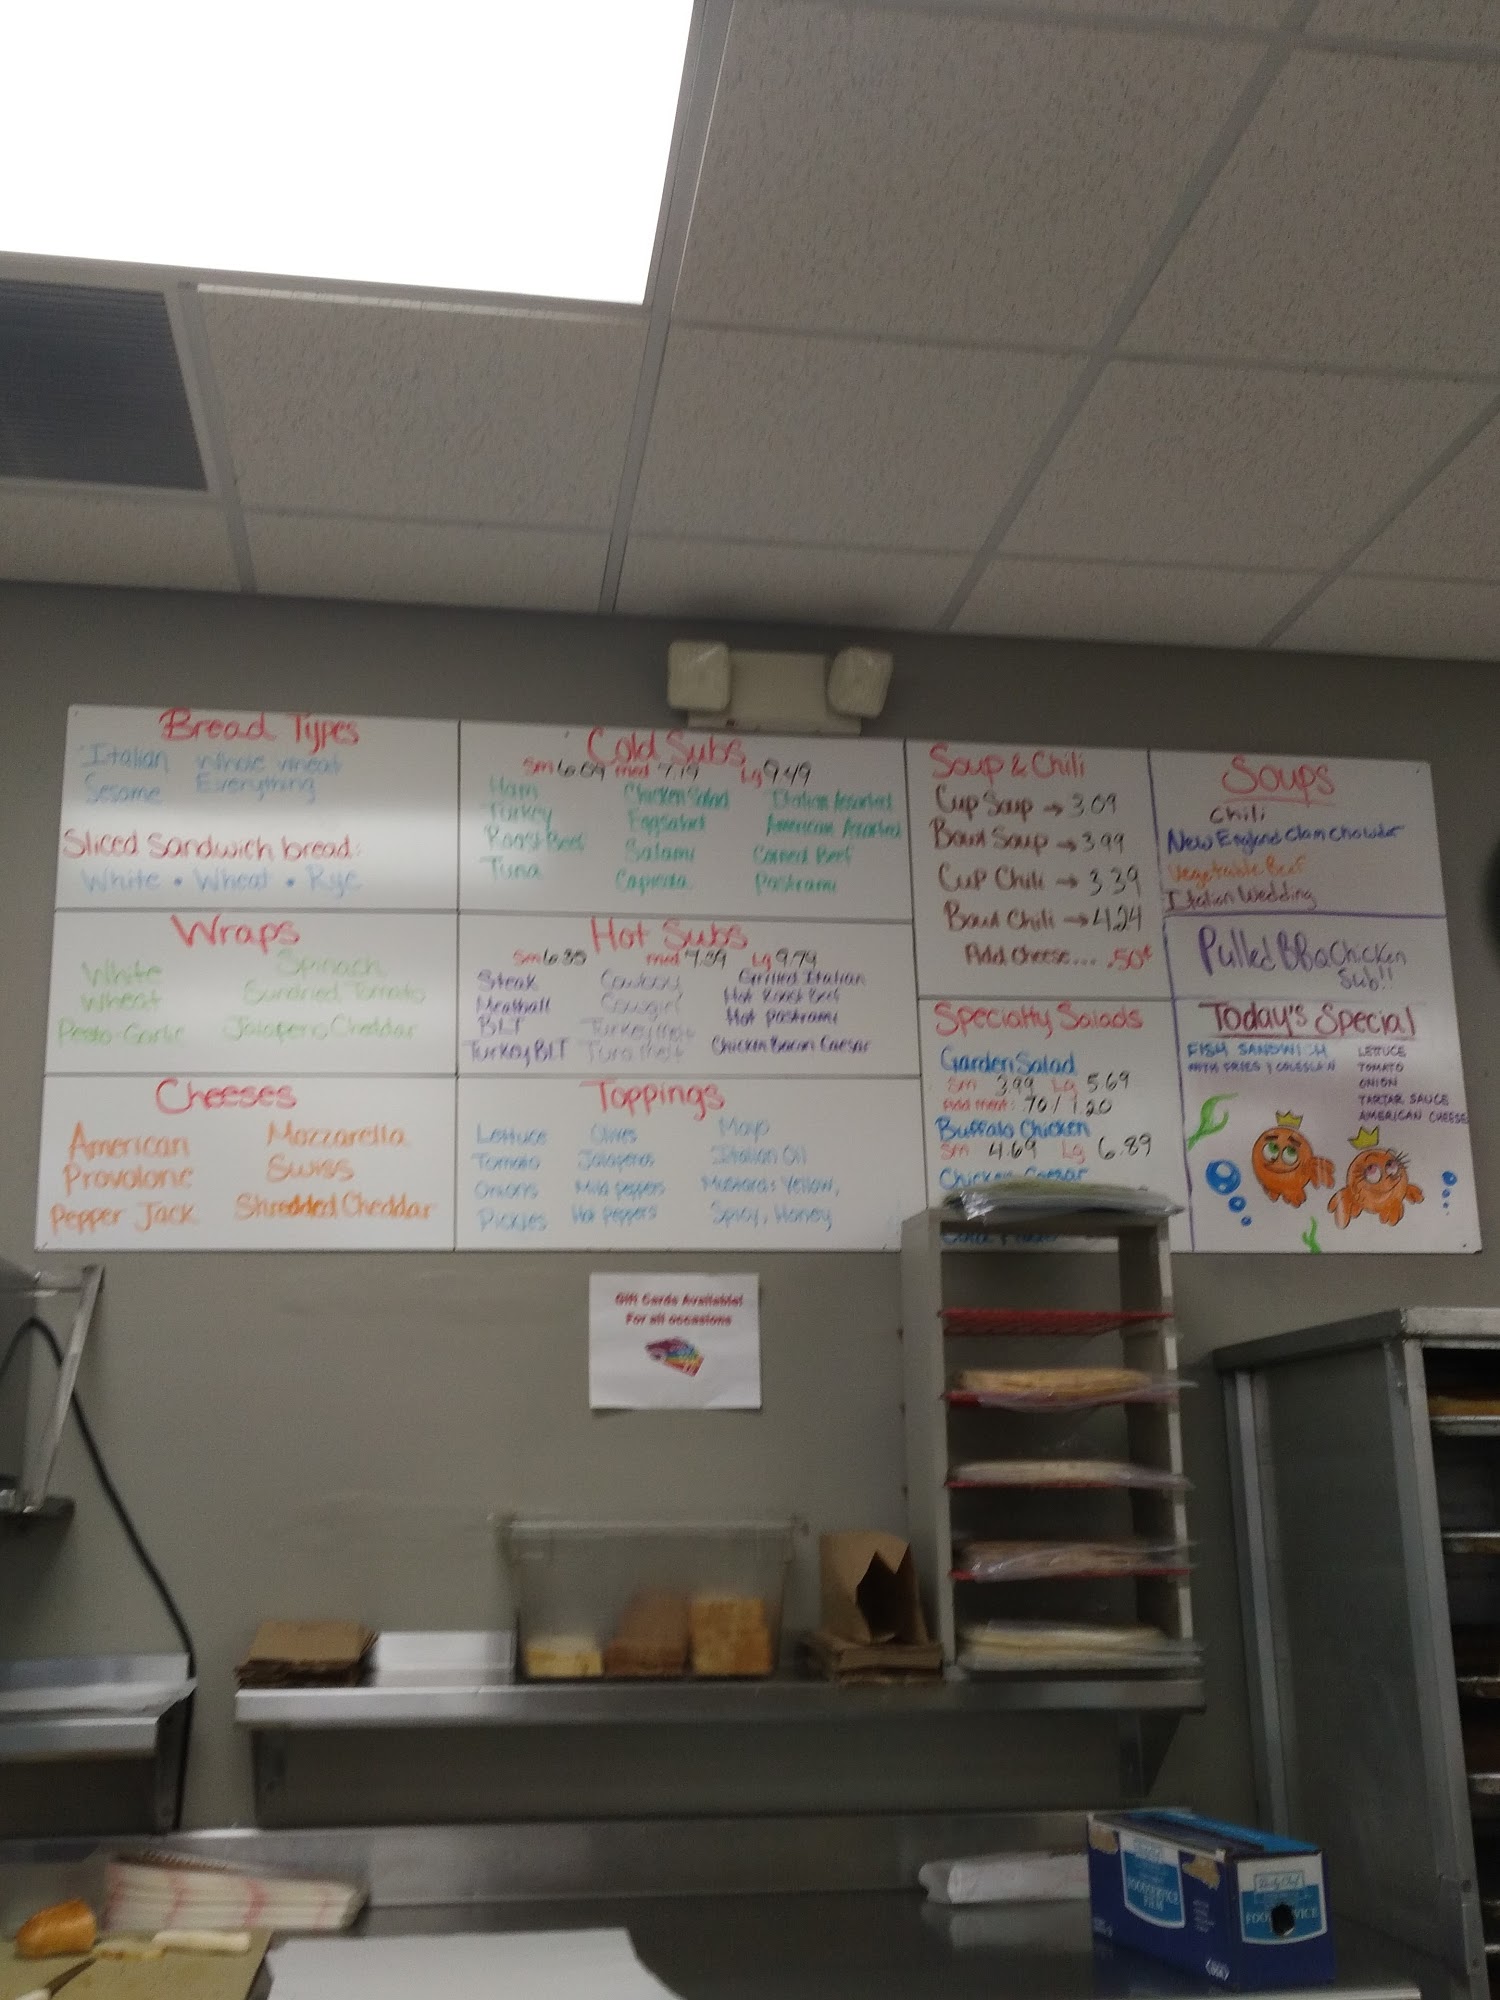 Bread Types
Italian Whole Wheat
Sesame Everything
Sliced Sandwich bread:
White • Wheat • Rye
Wraps
White Spinach
Wheat Sundried Tomato
Pesto-Garlic Jalapeno Cheddar
Cheeses
American Mozzarella
Provolone Swiss
Pepper Jack Shredded Cheddar
Cold Subs
Sm 6.09 med 7.19 Lg 9.49
Ham Chicken Salad Italian Assorted
Turkey Egg Salad American Assorted
Roast Beef Salami Corned Beef
Tuna Capicola Pastrami
Hot Subs
Sm 6.35 med 7.39 Lg 9.79
Steak Cowboy Grilled Italian
Meatball Cowgirl Hot Roast Beef
BLT Turkey Melt Hot Pastrami
Turkey BLT Tuna Melt Chicken Bacon Caesar
Toppings
Lettuce Olives Mayo
Tomato Jalapenos Italian Oil
Onions Mild Peppers Mustards: Yellow,
Pickles Hot Peppers Spicy, Honey
Soup & Chili
Cup Soup → 3.09
Bowl Soup → 3.99
Cup Chili → 3.39
Bowl Chili → 4.24
Add Cheese.... .50¢
Specialty Salads
Garden Salad
Sm 3.99 Lg 5.69
Add meat: .70 / 1.20
Buffalo Chicken
Sm 4.69 Lg 6.89
Chicken Caesar
Soups
Chili
New England Clam Chowder
Vegetable Beef
Italian Wedding
Pulled BBQ Chicken
Sub!!
Today's Special
FISH SANDWICH
WITH FRIES & COLESLAW
LETTUCE
TOMATO
ONION
TARTAR SAUCE
AMERICAN CHEESE
Gift Cards Available!
For all occasions
FOODSERVICE
FILM